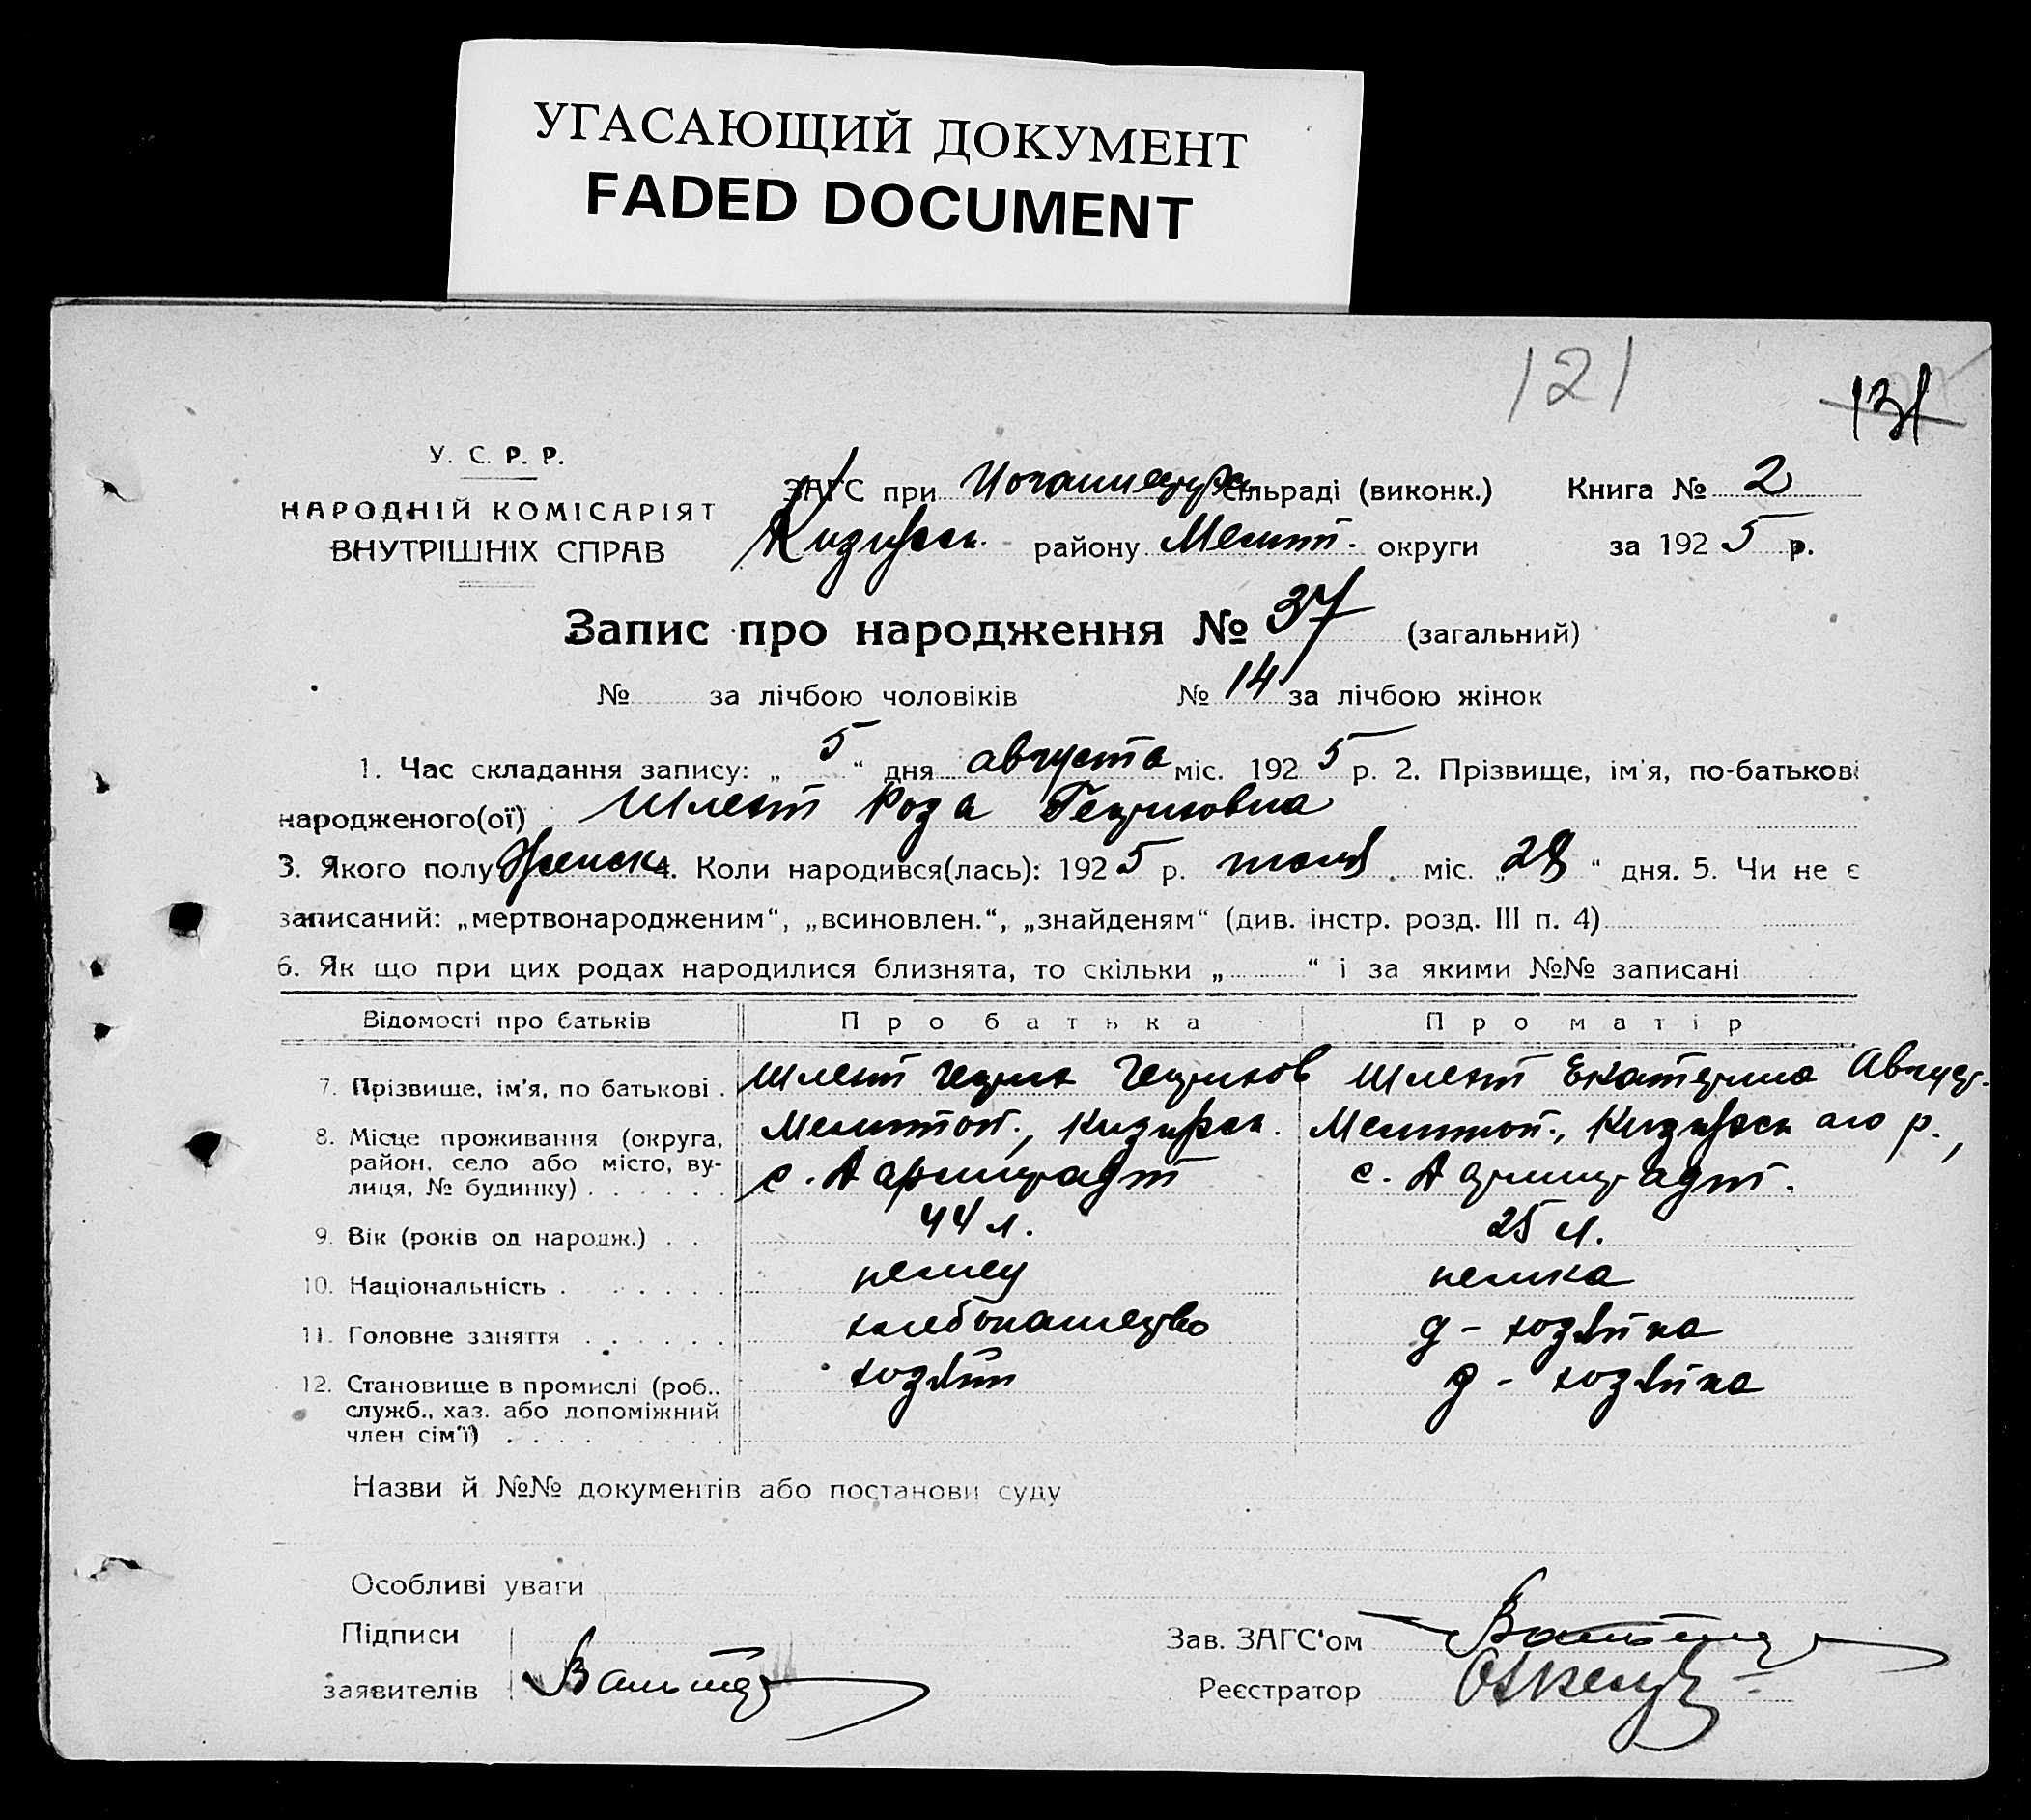 УГАСАЮЩИЙ ДОКУМЕНТ
FADED DOCUMENT
121
131
У. С. Р. Р.
НАРОДНІЙ КОМІСАРІЯТ
ВНУТРІШНІХ СПРАВ
ЗАГС при сільраді (виконк.) Книга № 2
району Мелит. округи за 1925 р.
Запис про народження № 37 (загальний)
№ за лічбою чоловіків № 14 за лічбою жінок
1. Час складання запису: „5“ дня августа міс. 1925 р. 2. Прізвище, ім'я, по-батькові
народженого(ої) Шлент Роза Генриховна
3. Якого полу Женск 4. Коли народився(лась): 1925 р. міс. „28“ дня. 5. Чи не є
записаний: „мертвонародженим“, „всиновлен.“, „знайденям“ (див. інстр. розд. III п. 4)
6. Як що при цих родах народилися близнята, то скільки „ “ і за якими №№ записані
Відомості про батьків Про батька Про матір
7. Прізвище, ім'я, по батькові . Шлент Генрих Генрихов Шлент Екатерина Август.
8. Місце проживання (округа, Мелитоп., Мелитоп., р.,
район, село або місто, ву-
лиця, № будинку) . . . . . . с. с.
9. Вік (років од народж.) . . 44 л. 25 л.
10. Національність . . . . . . немец немка
11. Головне заняття . . . . . . хлебопашество д-хозяйка
12. Становище в промислі (роб., хозяин д-хозяйка
служб., хаз. або допоміжний
член сім'ї) . . . . . . . .
Назви й №№ документів або постанови суду
Особливі уваги
Підписи
заявителів
Зав. ЗАГС'ом
Реєстратор